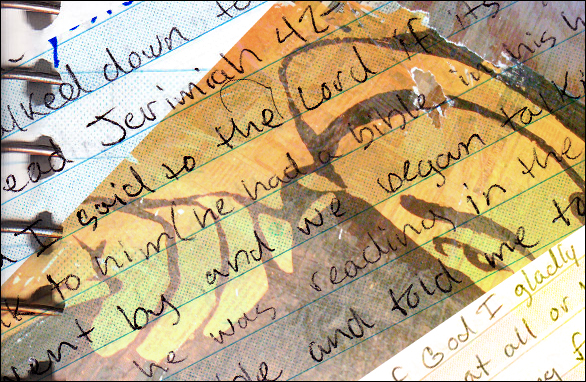 lked down to
ead Jerimiah 42-
I said to the Lord if its
lk to him (he had a bible in his h
ent by and we began talki
he was reading in the
ble and told me to
f God I gladly
at all or